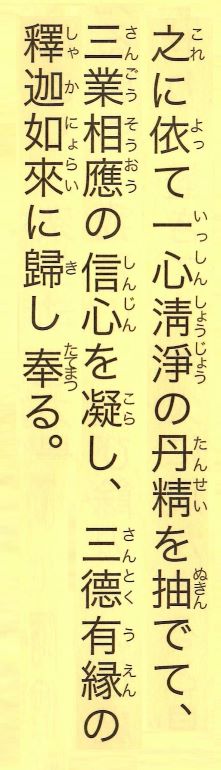 之に依て一心淸淨の丹精を抽でて、
三業相應の信心を凝し、三德有緣の
釋迦如來に歸し奉る。